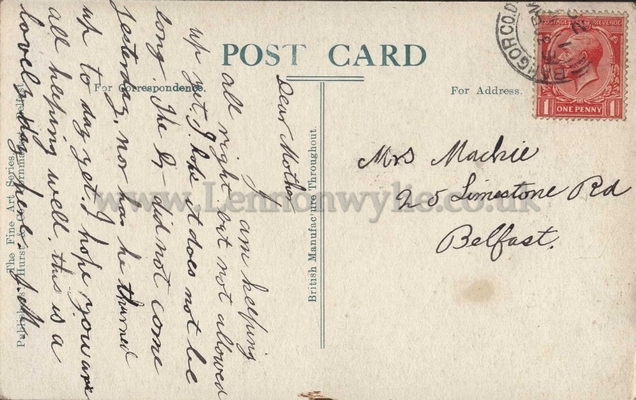 POST CARD
For Correspondence.
For Address.
British Manufacture Throughout.
The Fine Art Series.
ONE PENNY
1
1
Dear Mother
I am keeping
all right but not allowed
up yet, I hope it does not be
long The Dr did not come
yesterday, nor has he thurned
up to day yet. I hope you are
all keeping well, this is a
lovely day here. J.M.
Mrs Mackie
25 Limestone Rd
Belfast.
www.Lennonwylie.co.uk